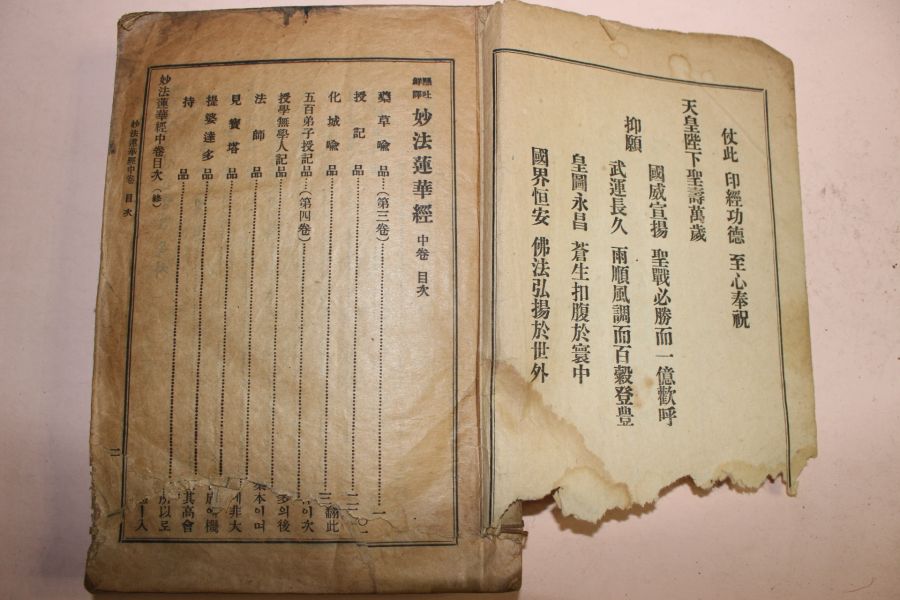 仗此 印經功德 至心奉祝
天皇陛下聖壽萬歲
國威宣揚 聖戰必勝而一億歡呼
抑願
武運長久 雨順風調而百穀登豊
皇圖永昌 蒼生扣腹於寰中
國界恒安 佛法弘揚於世外
懸吐
鮮譯
妙法蓮華經 中卷 目次
藥草喩品(第三卷) 一
授記品
化城喩品
五百弟子授記品(第四卷)
授學無學人記品
法師品
見寶塔品
提婆達多品
持品
妙法蓮華經中卷目次(終)
妙法蓮華經中卷 目次
一
翻此
이次
多의後
本이며
非大
其高會
所以로
入